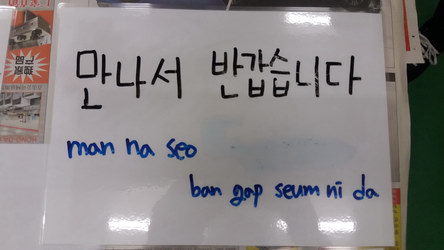 만나서 반갑습니다
man na seo
ban gap seum ni da